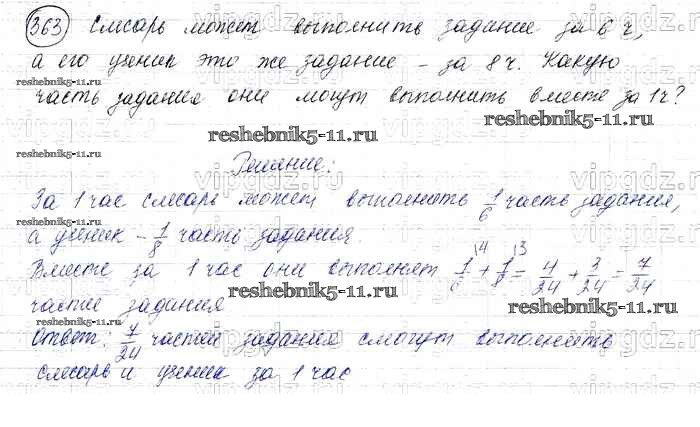 363 Слесарь может выполнить задание за 6 ч,
а его ученик это же задание – за 8 ч. Какую
часть задания они могут выполнить вместе за 1 ч?
Решение:
За 1 час слесарь может выполнить 1/6 часть задания,
а ученик – 1/8 часть задания.
Вместе за 1 час они выполнят 1/6 \4 + 1/8 \3 = 4/24 + 3/24 = 7/24
части задиния
Ответ: 7/24 частей задания смогут выполнить
слесарь и ученик за 1 час
reshebnik5-11.ru
reshebnik5-11.ru
reshebnik5-11.ru
reshebnik5-11.ru
reshebnik5-11.ru
reshebnik5-11.ru
reshebnik5-11.ru
reshebnik5-11.ru